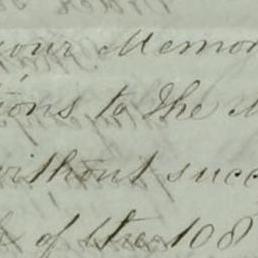 your Memor
ions to the M
without succ
of the 108